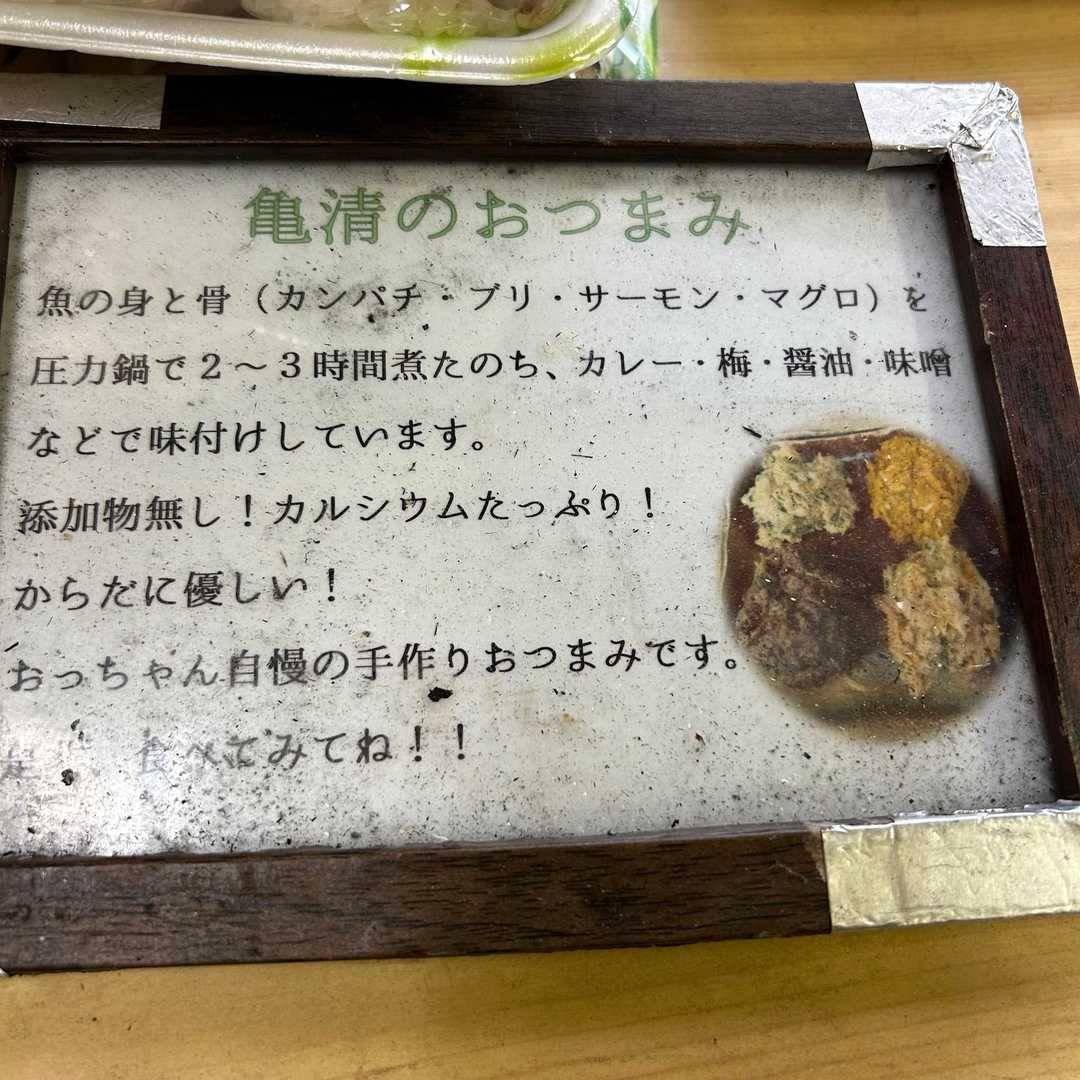 亀清のおつまみ
魚の身と骨（カンパチ・ブリ・サーモン・マグロ）を
圧力鍋で２～３時間煮たのち、カレー・梅・醤油・味噌
などで味付けしています。
添加物無し！カルシウムたっぷり！
からだに優しい！
おっちゃん自慢の手作りおつまみです。
食べてみてね！！